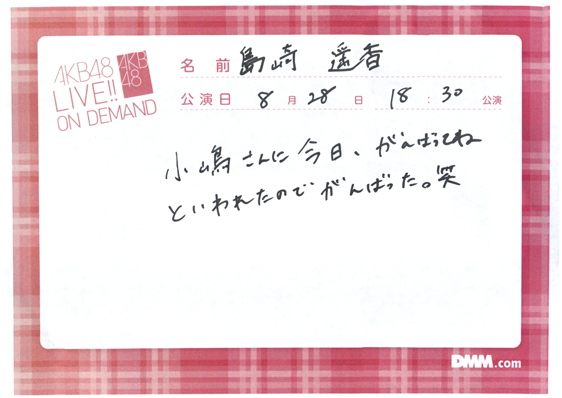 AKB48
LIVE!!
ON DEMAND
AKB
48
名前 島崎 遥香
公演日 8月28日 18:30公演
小嶋さんに今日、がんばってね
といわれたのでがんばった。笑
DMM.com